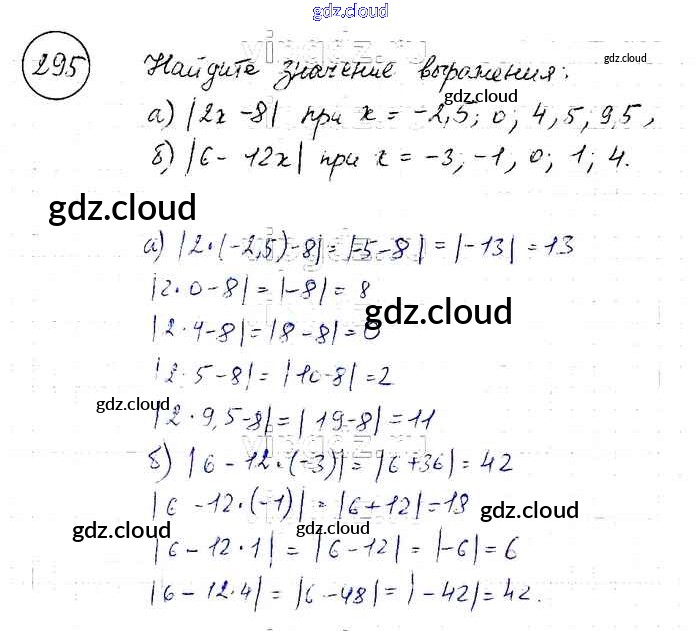 gdz.cloud
295 Найдите значение выражения:
gdz.cloud
gdz.cloud
а) |2x - 8| при x = -2,5; 0; 4, 5, 9,5,
б) |6 - 12x| при x = -3; -1, 0; 1; 4.
gdz.cloud
а) |2·(-2,5)-8| = |-5-8| = |-13| = 13
|2·0-8| = |-8| = 8
gdz.cloud
|2·4-8| = |8-8| = 0
|2·5-8| = |10-8| = 2
gdz.cloud
|2·9,5-8| = |19-8| = 11
б) |6 - 12·(-3)| = |6+36| = 42
|6 - 12·(-1)| = |6+12| = 18
gdz.cloud
gdz.cloud
gdz.cloud
|6-12·1| = |6-12| = |-6| = 6
|6-12·4| = |6-48| = |-42| = 42.